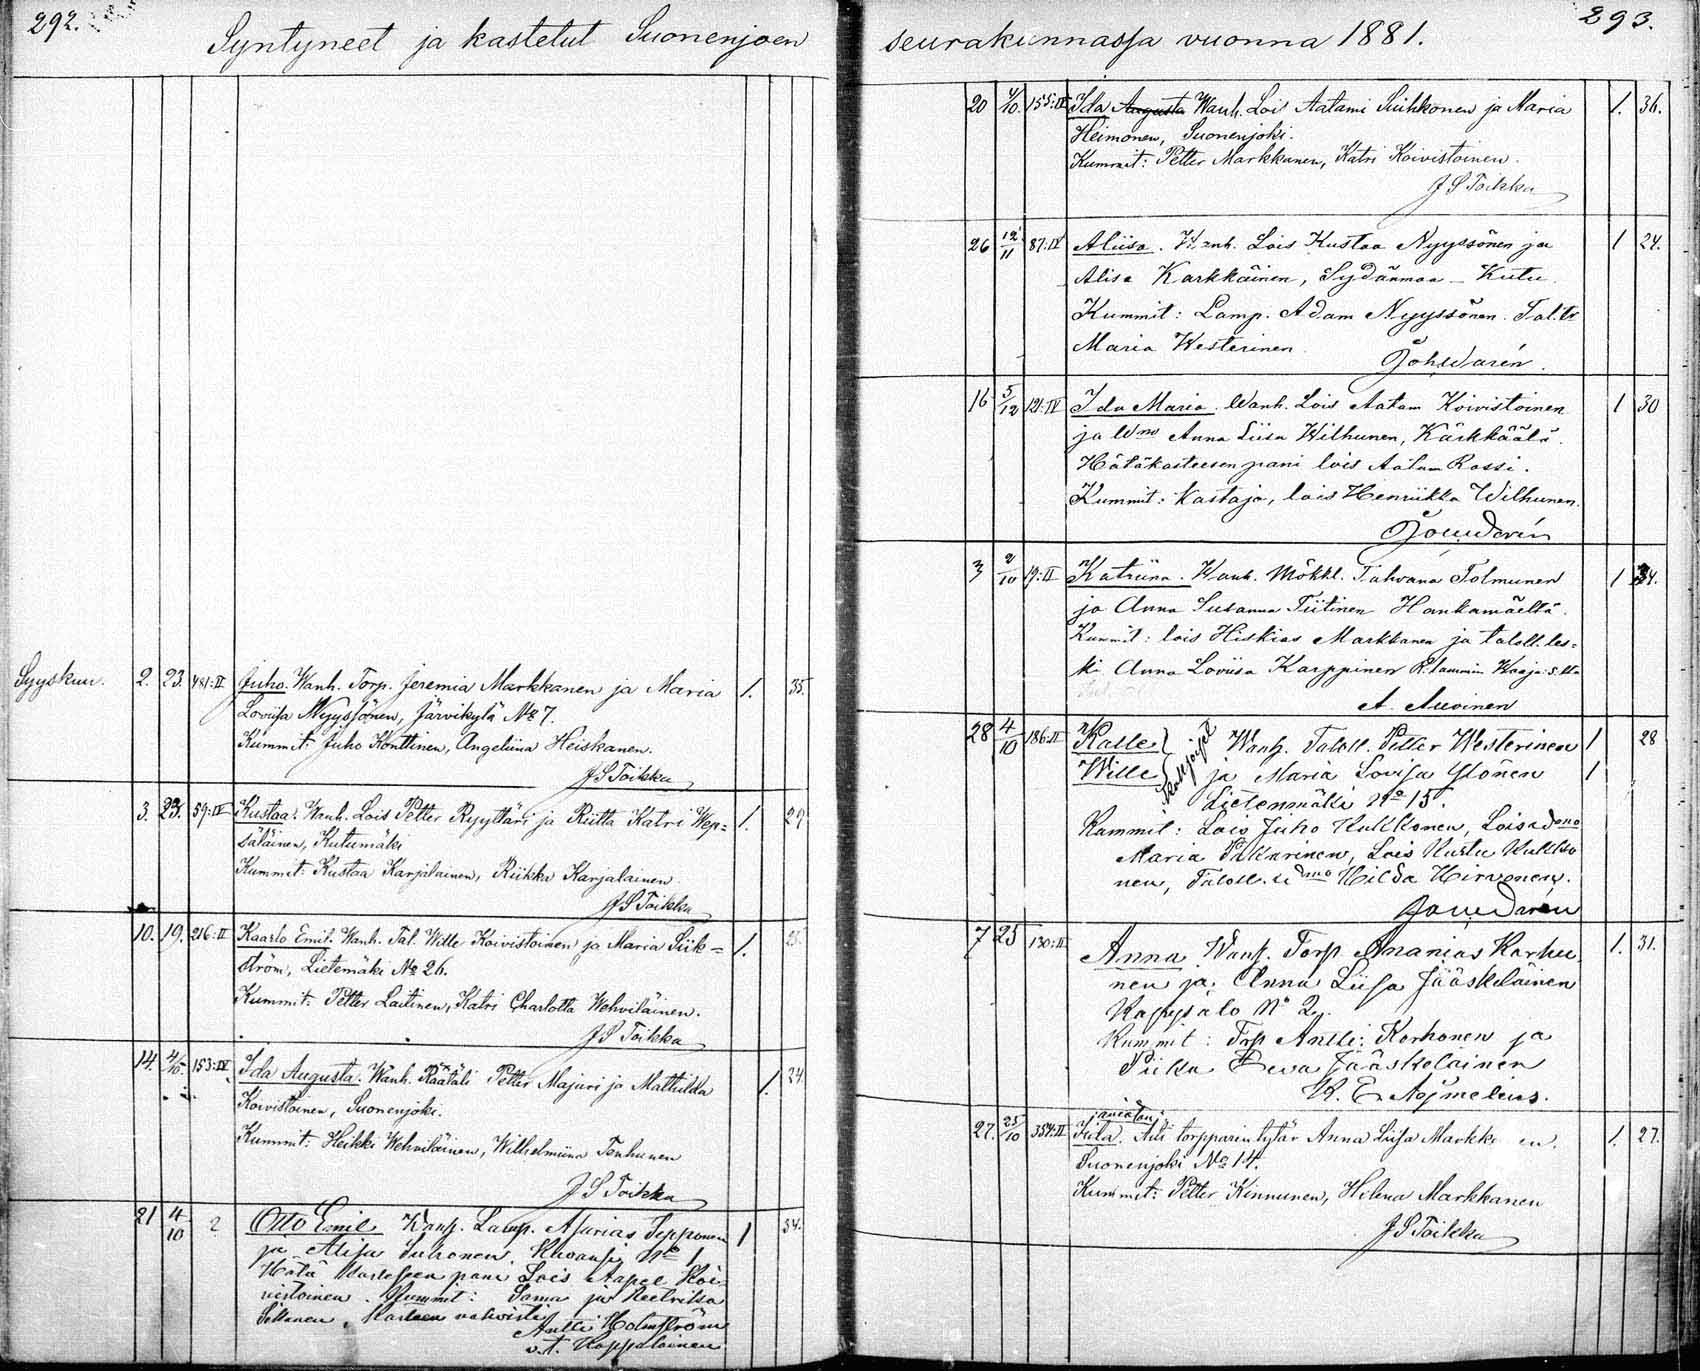 292.
Syntyneet ja kastetut Suonenjoen
Syyskuu. 2. 23. 481:II Juho. Wanh. Torp. Jeremia Markkanen ja Maria 1. 35.
Lovisa Nyyssönen, Järvikylä No 7.
Kummit: Juho Konttinen, Angeliina Heiskanen.
J S Toikka
3. 23. 59:IV Kustaa. Wanh. Lois Petter Ryyttäri ja Riitta Katri Wep= 1. 29
säläinen, Kutumäki
Kummit: Kustaa Karjalainen, Riikka Karjalainen
J S Toikka
10. 19. 216:II Kaarlo Emil. Wanh. Tal. Wille Koivistoinen ja Maria Siik= 1. 25.
ström, Lietemäki No 26.
Kummit: Petter Laitinen, Katri Charlotta Wehviläinen.
J S Toikka
14. 4/10 153:IV Ida Augusta. Wanh. Räätäli Petter Majuri ja Mathilda 1. 24.
Koivistoinen, Suonenjoki.
Kummit: Heikki Wehviläinen, Wilhelmiina Tenhunen
J S Toikka
21 4/10 2 Otto Emil Wanh. Lamp. Asarias Sepponen 1 34.
ja Alisa Suhonen No 1
Hätä kasteseen pani Lois Aapel Koi-
vistoinen. Kummit: Sama ja
Kasteen vahvisti
Antti Holmström
v.t. Kappalainen
293.
seurakunnassa vuonna 1881.
20 4/10. 155:IV Ida Augusta Wanh. Lois Aatami Suihkonen ja Maria 1. 36.
Heimonen, Suonenjoki.
Kummit: Petter Markkanen, Katri Koivistoinen.
J S Toikka
26 12/11 87:IV Aliisa. Wanh. Lois Kustaa Nyyssönen ja 1 24.
Alisa Karkkäinen, Sydänmaa - Kutu.
Kummit: Lamp. Adam Nyyssönen. Tal. tr
Maria Westerinen.
16 5/12 121:IV Ida Maria. Wanh. Lois Aatam Koivistoinen 1 30
ja Wmo Anna Liisa Wilhunen, Kärkkäälä.
Hätäkasteesen pani lois Aatam Rossi.
Kummit: Kastaja, lois Henriikka Wilhunen.
3 2/10 19:II Katriina. Wanh. Mökkl. Tahvana Tolmunen 1 34.
ja Anna Susanna Tiitinen Hankamäeltä.
Kummit: lois Hiskias Markkanen ja taloll. les=
ki Anna Loviisa Karppinen
A. Auvinen
28 4/10 186:II Kalle } Wanh. Taloll. Petter Westerinen 1 28
Wille } kaksoiset ja Maria Lovisa Ylönen 1
Lietenmäki No 15.
Kummit: Lois Juho Kukkonen, Lois
Maria Pikarinen, Lois Kusta Kukko
nen, Taloll. Hilda Hirvonen.
7 25 130:II Anna Wanh. Torp Ananias Karhu 1. 31.
nen ja Anna Liisa Jääskeläinen
No 2.
Kummit: Torp Antti Korhonen ja
Piika Eeva Jääskeläinen
K. E. Asjmelius.
27. 25/10 354:II Iida. Äiti torpparin tytär Anna Liisa Markkanen. 1. 27.
Suonenjoki No 14.
Kummit: Petter Kinnunen, Helena Markkanen
J S Toikka